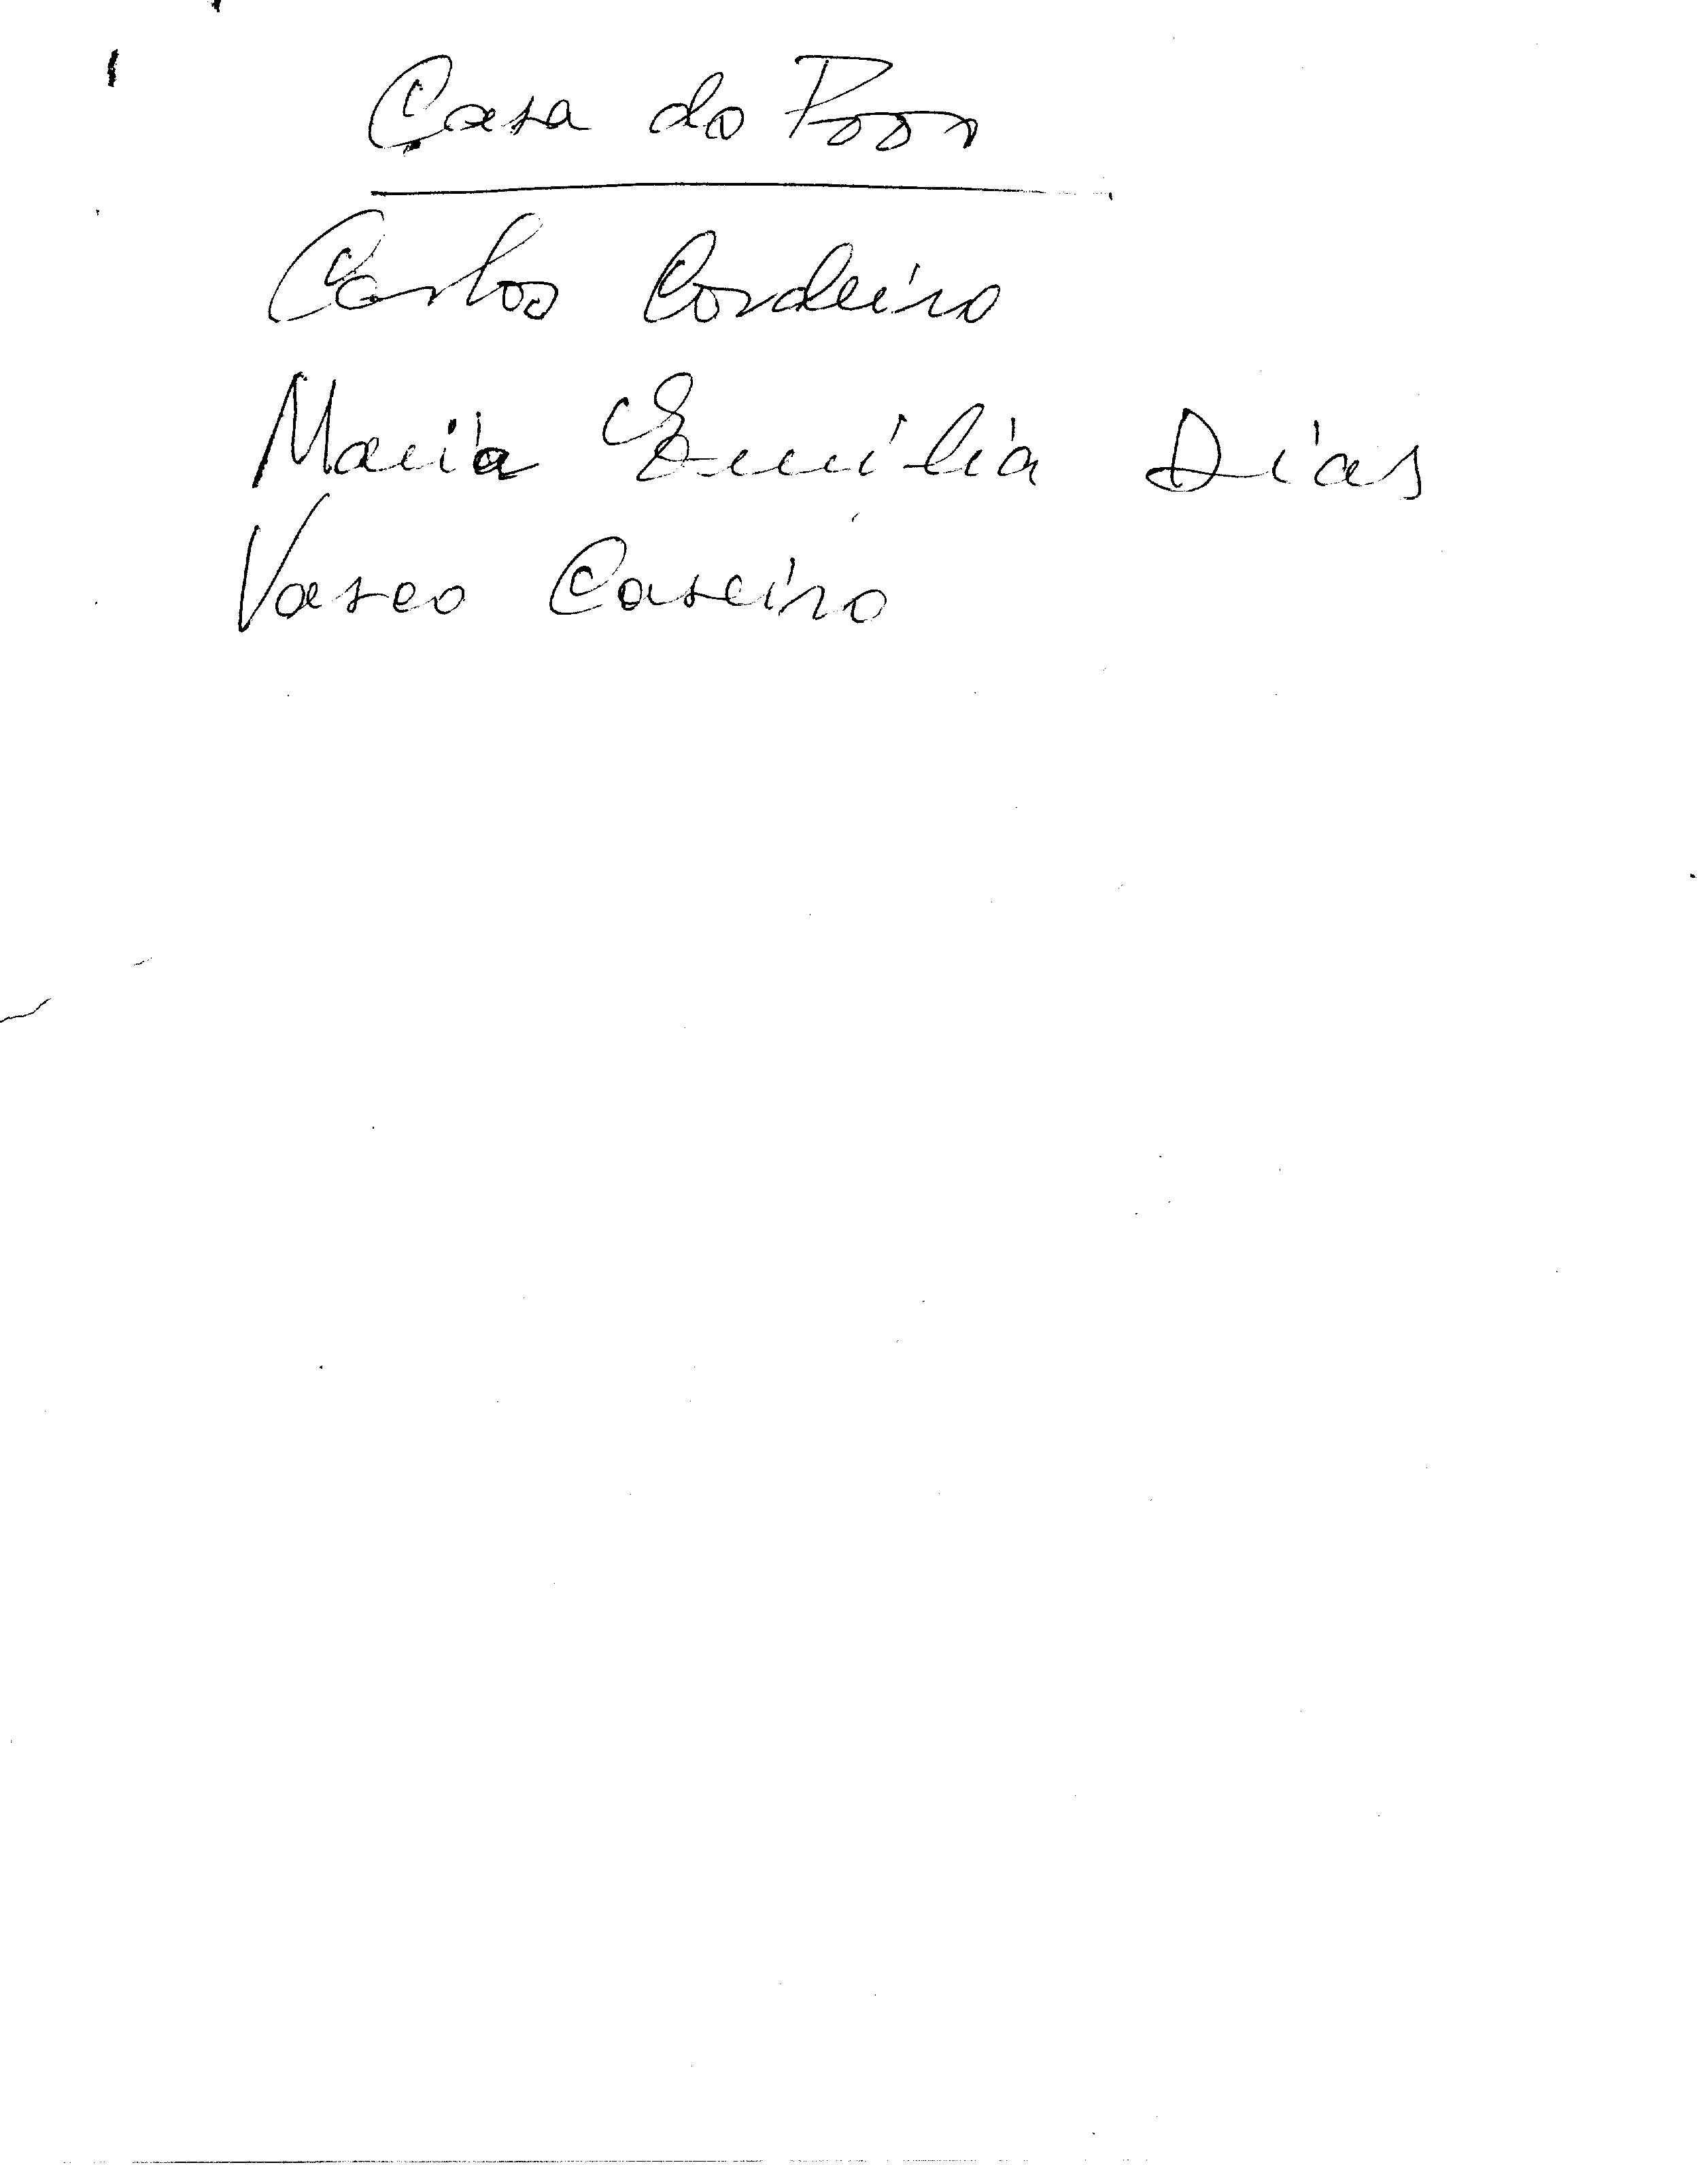 Casa do Povo
Carlos Cordeiro
Maria Emília Dias
Vasco Caseiro